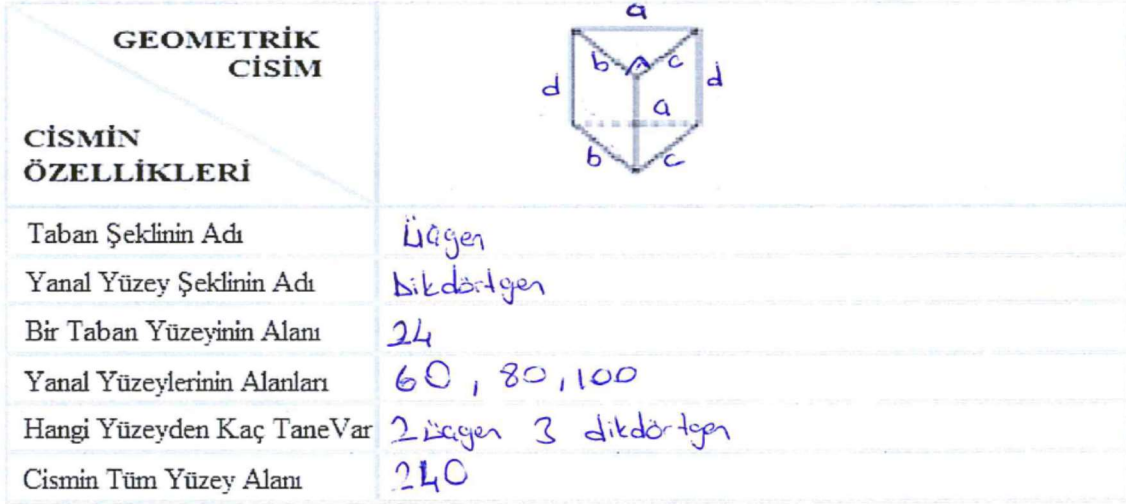 a
GEOMETRİK
CİSİM
b c
d d
a
CİSMİN
ÖZELLİKLERİ
b c
Taban Şeklinin Adı Üçgen
Yanal Yüzey Şeklinin Adı Dikdörtgen
Bir Taban Yüzeyinin Alanı 24
Yanal Yüzeylerinin Alanları 60, 80, 100
Hangi Yüzeyden Kaç TaneVar 2 üçgen 3 dikdörtgen
Cismin Tüm Yüzey Alanı 240